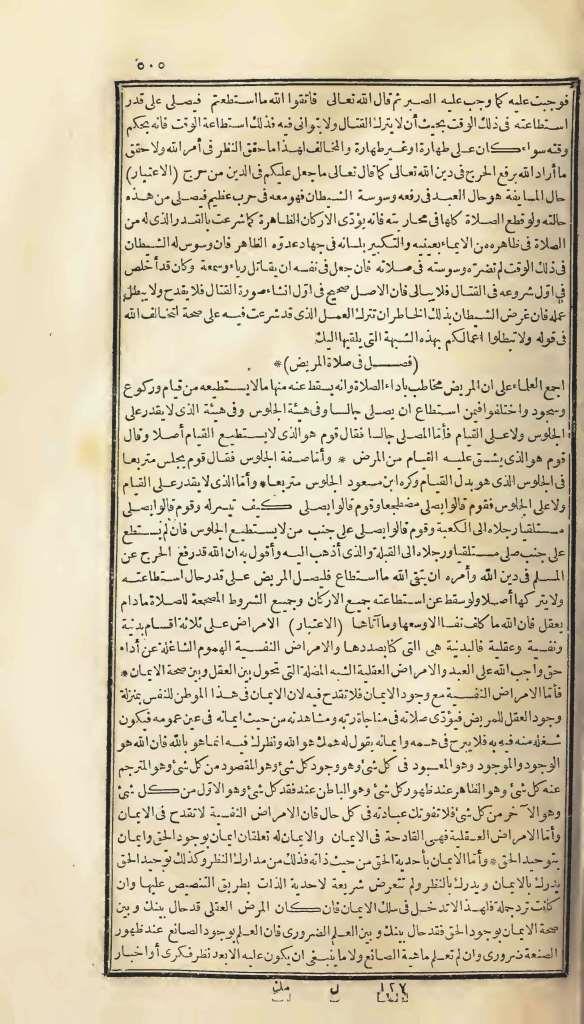 ٥٠٥
فوجبت عليه كما وجب عليه الصبر ثم قال الله تعالى فاتقوا الله ما استطعتم فيصلى على قدر
استطاعته فى ذلك الوقت بحيث أن لا يترك القتال ولا يتوانى فيه فذلك استطاعة الوقت فانه بحكم
وقته سواء كان على طهارة أو غير طهارة والمخالف لهذا ما حقق النظر فى أمر الله ولا حقق
ما أراد الله برفع الحرج فى دين الله تعالى كما قال تعالى ما جعل عليكم فى الدين من حرج (الاعتبار)
حال المسايفة هو حال العبد فى رفعه وسوسة الشيطان فهو معه فى حرب عظيم فيصلى من هذه
حالته ولو قطع الصلاة كلها فى محاربته فانه يؤدّى الاركان الظاهرة كما شرعت بالقدر الذى له من
الصلاة فى ظاهره من الايماء بعينيه والتكبير بلسانه فى جهاد عدوّه الظاهر فان وسوس له الشيطان
فى ذلك الوقت لم تضرّه وسوسته فى صلاته فان جعل فى نفسه ان يقاتل رياء وسمعة وكان قد أخلص
فى اوّل شروعه فى القتال فلا يبالى فان الاصل صحيح فى اوّل انشاء صورة القتال فلا يقدح ولا يبطل
عمله فان غرض الشيطان بذلك الخاطر ان تترك العمل الذى قد شرعت فيه على صحة لتخالف الله
فى قوله ولا تبطلوا اعمالكم بهذه الشبهة التى يلقيها اليك
(فصل فى صلاة المريض)*
اجمع العلماء على ان المريض مخاطب باداء الصلاة وانه يسقط عنه منها ما لا يستطيعه من قيام وركوع
وسجود واختلفوا فيمن استطاع ان يصلى جالسا وفى هيئة الجلوس وفى هيئة الذى لا يقدر على
الجلوس ولا على القيام فأمّا المصلى جالسا فقال قوم هو الذى لا يستطيع القيام أصلا وقال
قوم هو الذى يشق عليه القيام من المرض * وأمّا صفة الجلوس فقال قوم يجلس متربعا
فى الجلوس الذى هو بدل القيام وكره ابن مسعود الجلوس متربعا* وأمّا الذى لا يقدر على القيام
ولا على الجلوس فقوم قالوا يصلى مضطجعا وقوم قالوا يصلى كيف تيسر له وقوم قالوا يصلى
مستلقيا رجلاه الى الكعبة وقوم قالوا يصلى على جنب من لا يستطيع الجلوس فان لم يستطع
على جنب صلى مستلقيا ورجلاه الى القبلة والذى أذهب اليه وأقول به ان الله قد رفع الحرج عن
المسلم فى دين الله وأمره ان يتقى الله ما استطاع فليصل المريض على قدر حال استطاعته
ولا يتركها أصلا ولو سقط عن استطاعته جميع الاركان وجميع الشروط المصححة للصلاة مادام
يعقل فان الله ما كلف نفسا الا وسعها وما آتاها (الاعتبار) الامراض على ثلاثة اقسام بدنية
ونفسية وعقلية فالبدنية هى التى كنا بصددها والامراض النفسية الهموم الشاغلة عن أداء
حق واجب الله على العبد والامراض العقلية الشبه المضلة التى تحول بين العقل وبين صحة الايمان*
فأمّا الامراض النفسية مع وجود الايمان فلا تقدح فيه لان الايمان فى هذا الموطن للنفس بمنزلة
وجود العقل للمريض فيؤدّى صلاته فى مناجاة ربه ومشاهدته من حيث ايمانه فى عين عمومه فيكون
شغله منه فيه به فلا يبرح فى همه وايمانه يقول له همك هو الله ونظرك فيه انما هو بالله فان الله هو
الوجود والموجود وهو المعبود فى كل شئ وهو وجود كل شئ وهو المقصود من كل شئ وهو المترجم
عنه كل شئ وهو الظاهر عند ظهور كل شئ وهو الباطن عند فقد كل شئ وهو الاوّل من كل شئ
وهو الآخر من كل شئ فلا تفوتك عبادته فى كل حال فان الامراض النفسية لا تقدح فى الايمان
وأمّا الامراض العقلية فهى القادحة فى الايمان والايمان له تعلقان ايمان بوجود الحق وايمان
بتوحيد الحق * وأمّا الايمان بأحدية الحق من حيث ذاته فذلك من مدارك النظر وكذلك توحيد الحق
يدرك بالايمان ويدرك بالنظر ولم تتعرض شريعة لاحدية الذات بطريق التنصيص عليها وان
كانت ترد جملة فلهذا لا تدخل فى سلك الايمان فان كان المرض العقلى قد حال بينك وبين
صحة الايمان بوجود الحق فقد حال بينك وبين العلم الضرورى فان العلم بوجود الصانع عند ظهور
الصنعة ضرورى وان لم تعلم ماهية الصانع ولا ما ينبغى ان يكون عليه الا بعد نظر فكرى أو اخبار
١٢٧ ل